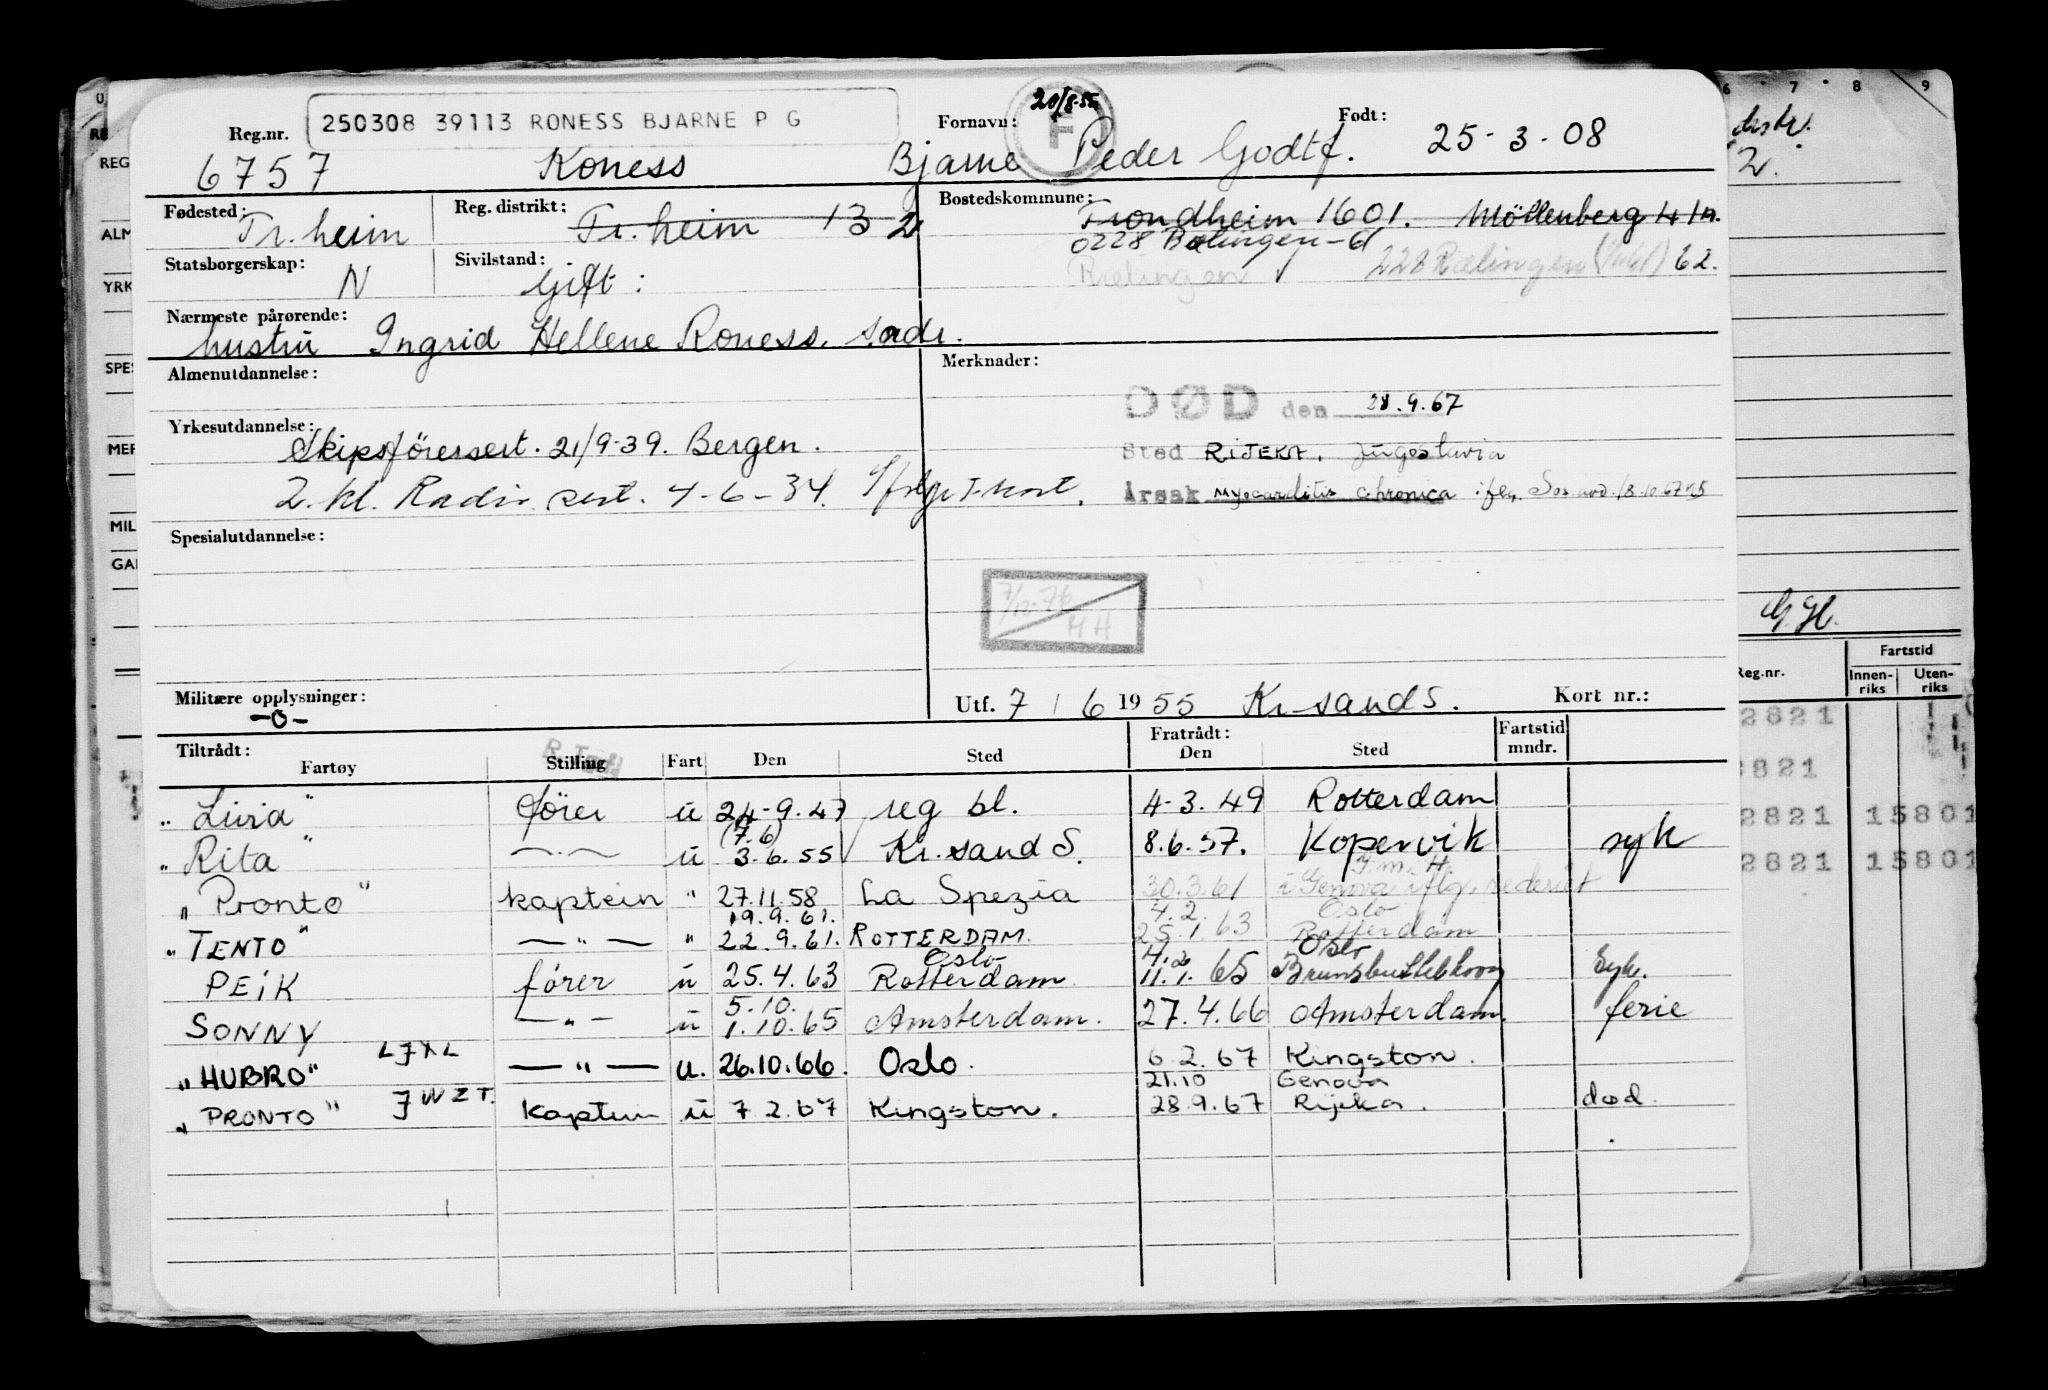 250308 39113 RONESS BJARNE P G
20/8-55
F
Reg.nr. Fornavn: Født:
6757 Roness Bjarne Peder Godtf. 25-3-08
Fødested: Reg. distrikt: Bostedskommune:
Tr.heim Tr.heim 13 2 Trondheim 1601. Möllenberg 41A.
0228 Rælingen-61
Statsborgerskap: Sivilstand:
N Gift: Rælingen 228 Rælingen 62.
Nærmeste pårørende:
hustru Ingrid Hellene Roness. s.adr.
Almenutdannelse: Merknader:
DØD den 28.9.67
Yrkesutdannelse:
Skipsförersert. 21/9-39. Bergen.
Sted RIJEKA, Jugoslavia
2. kl. Radio sert. 4-6-34. Ifølge T-kort.
Årsak Myocarditis chronica ifølg. Sos.avd. 18.10.67
Spesialutdannelse:
7/12-76
HH
Militære opplysninger:
-0-
Utf. 7/6 1955 Kr-sand S. Kort nr.:
Tiltrådt: Fratrådt: Fartstid mndr.
Fartøy Stilling Fart Den Sted Den Sted
"Livia" förer u 24-9.47 reg bl. 4-3.49 Rotterdam
(7.6)
"Rita" —·— u 3.6.55 Kr.sand S. 8.6.57. Kopervik syk
"Pronto" kaptein " 27.11.58 La Spezia 30.3.61 Genova iflg. rederiet
19.9.61. 4.2. Oslo
"TENTO" —"— " 22.9.61. ROTTERDAM. 25.1.63 Rotterdam
Oslo 4.2 Oslo
PEIK förer u 25.4.63 Rotterdam 11.1.65 Brunsbuttelkoog Syk.
5.10.
SONNY —"— u 1.10.65 Amsterdam. 27.4.66 Amsterdam. ferie
"HUBRO" LJXL —"— u. 26.10.66. Oslo. 6.2.67 Kingston.
21.10 Genova
"PRONTO" JWZT. Kaptein u 7.2.67 Kingston. 28.9.67 Rijeka. død.
6 7 8 9
2.
G.H.
Reg.nr. Fartstid
Innen-riks Uten-riks
2821
2821
2821 15801
2821 15801
REG
ALM
YRK
SPES
MER
MIL
GAR